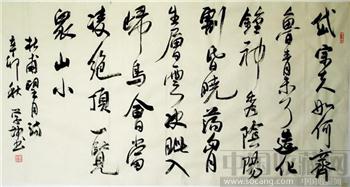 岱宗夫如何齊
魯青未了造化
鍾神秀陰陽
割昏曉蕩胸
生層雲決眥入
歸鳥會當
凌絕頂一覽
眾山小
杜甫望岳詩
辛卯秋
www.socang.com